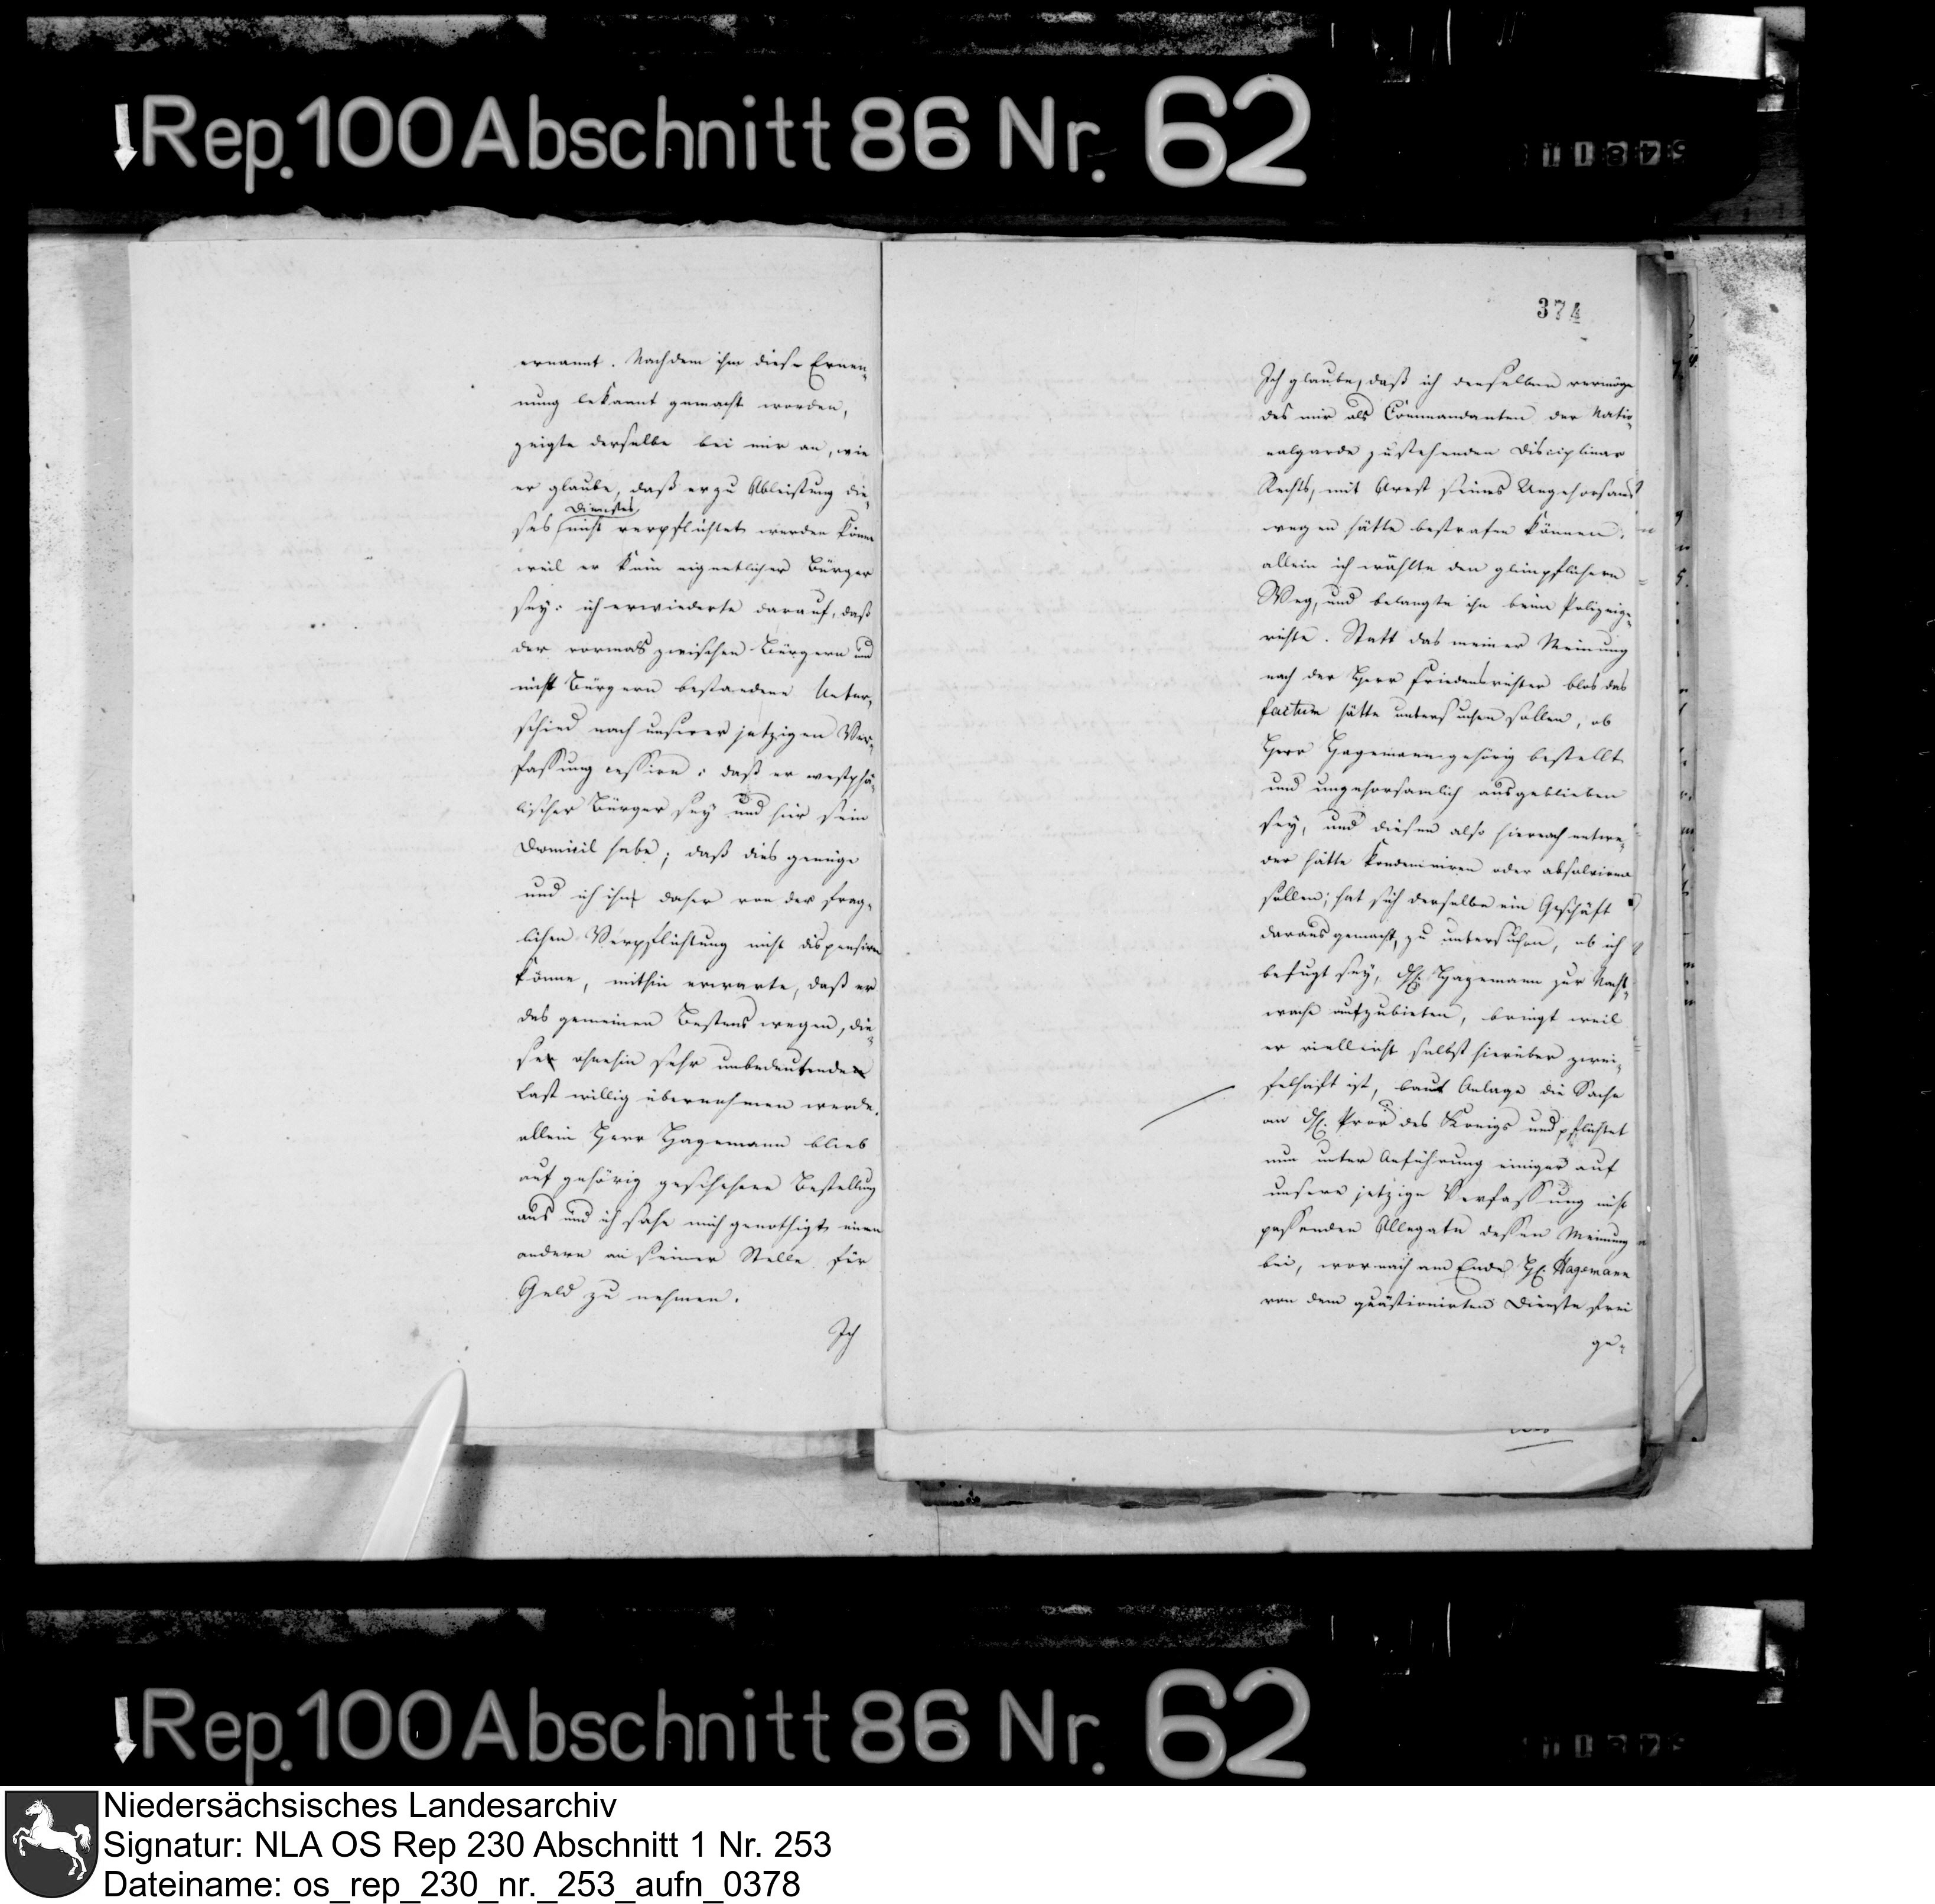 Rep. 100 Abschnitt 86 Nr. 62
ernannt. Nachdem ihm diese Ernen-
nung bekannt gemacht worden,
zeigte derselbe bei mir an, wie
er glaube, daß er zu Ableistung die-
Dienstes
ses nicht verpflichtet werden könne
weil er kein eigentlicher Bürger
sey: ich erwiederte darauf, daß
der vormals zwischen Bürgern und
nicht Bürgern bestandene Unter-
schied nach unserer jetzigen Ver-
fassung cessire; daß er westphä-
lischer Bürger sey und hier sein
Domicil habe; daß dies genüge
und ich ihn daher von der frag-
lichen Verpflichtung nicht dispensiren
könne, mithin erwarte, daß er
des gemeinen Bestens wegen, die-
se ohnehin sehr unbedeutende
Last willig übernehmen werde.
allein Herr Hagemann blieb
auf gehörig geschehene Bestellung
aus und ich sahe mich genothigt einen
andern an seiner Stelle für
Geld zu nehmen.
Ich
374
Ich glaube, daß ich denselben vermöge
des mir als Commandanten der Natio-
nalgarde zustehenden Disciplinar
Rechts, mit Arest seines Ungehorsams
wegen hätte bestrafen können.
allein ich wählte den glimpflichern
Weg, und belangte ihn beim Polizeige-
richte. Statt das meiner Meinung
nach der Herr Friedensrichter blos das
factum hätte untersuchen sollen, ob
Herr Hagemann gehörig bestellt
und ungehorsamlich ausgeblieben
sey, und diesen also hiernach entwe-
der hätte kondemniren oder absolviren
sollen; hat sich derselbe ein Geschäft
daraus gemacht, zu untersuchen, ob ich
befugt sey, H. Hagemann zur Nacht-
wache aufzubieten, bringt weil
er vielleicht selbst hierüber zwei-
felhaft ist, laut Anlage die Sache
an H. Pror des Königs und pflichtet
nun unter Anführung einiger auf
unsere jetzige Verfassung nicht
passenden Allegate dessen Meinung
bei, wornach am Ende H. Hagemann
von dem quästionirten Dienste frei
ge-
Rep. 100 Abschnitt 86 Nr. 62
Niedersächsisches Landesarchiv
Signatur: NLA OS Rep 230 Abschnitt 1 Nr. 253
Dateiname: os_rep_230_nr._253_aufn_0378